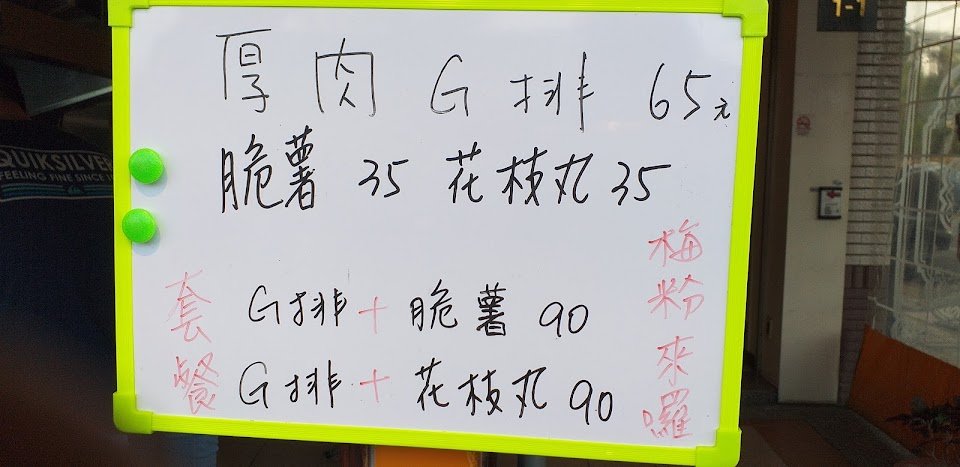 厚肉G排 65元
脆薯 35 花枝丸 35
套餐
G排+脆薯 90
G排+花枝丸 90
梅粉來囉
QUIKSILVER
FEELING FINE SINCE
1-1